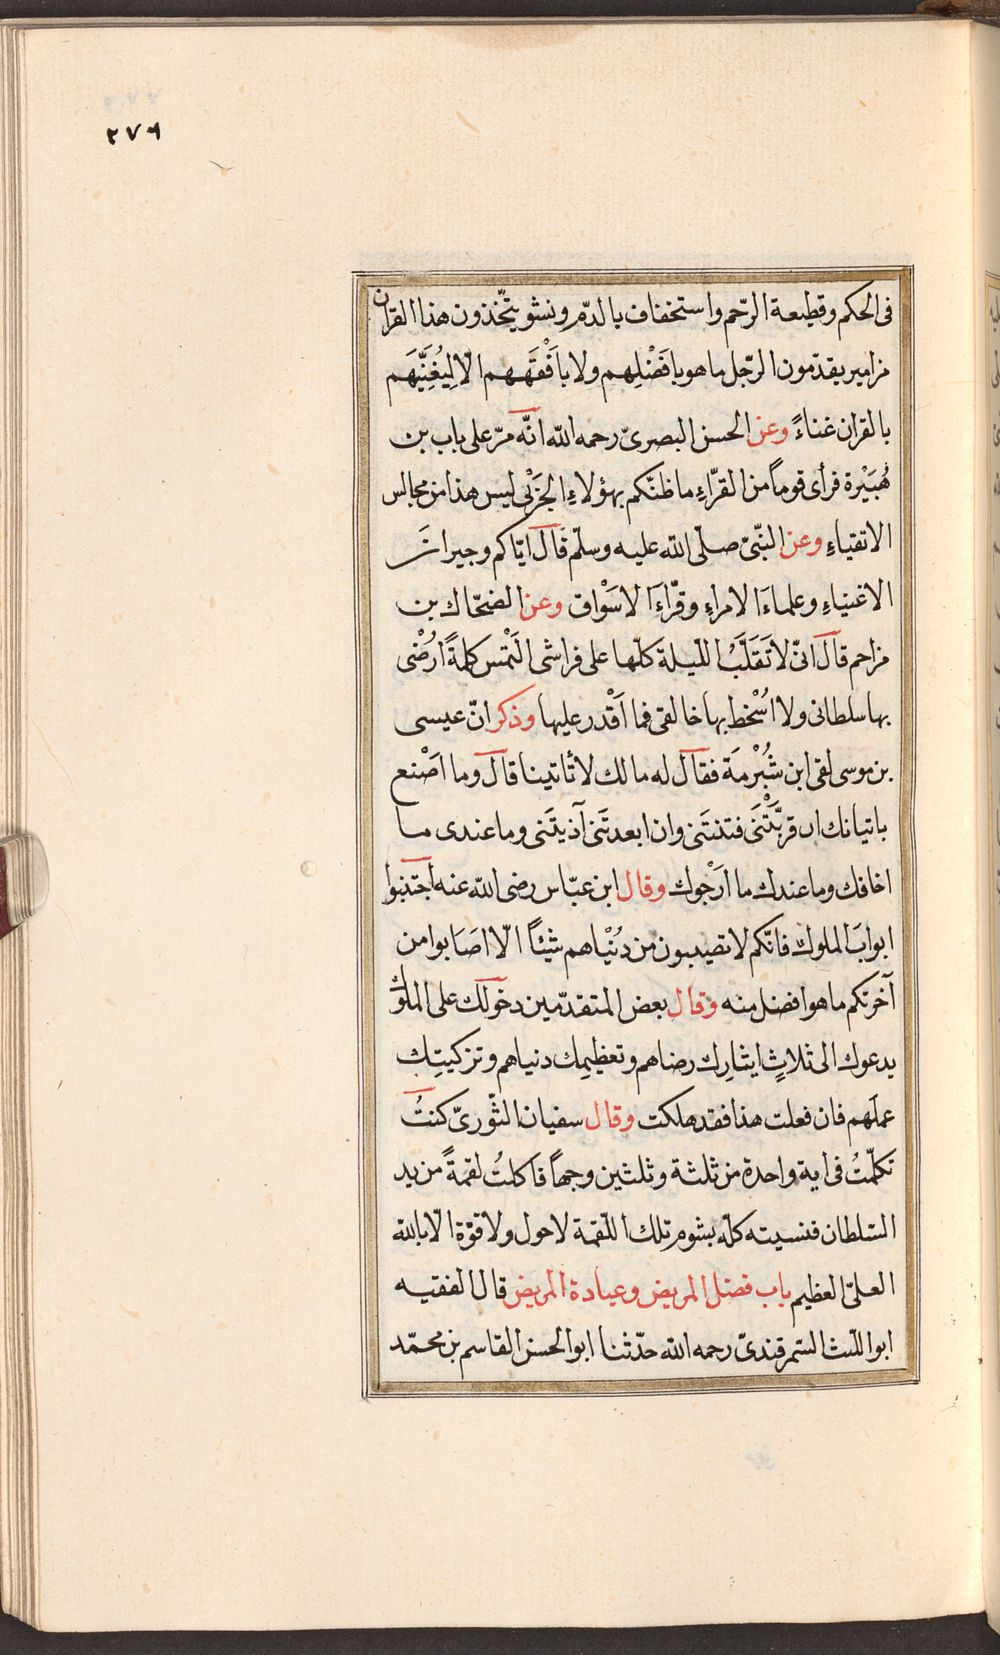 ٢٧٦
فى الحكم وقطيعة الرّحم واستخفاف بالدّم ونشو يتّخذون هذا القران
مزامير يقدّمون الرّجل ما هو بافَضْلِهم ولا بافْقَهَهم الّا لِيُغَنِّيَهم
بالقران غناءً وعن الحسن البصرىّ رحمه الله انّه مرّ على باب بن
هُبَيْرة فرأى قوماً من القرّاءِ ما ظنّكم بهؤلاءِ الجَزْبى ليس هذا من مجالس
الاتقياءِ وعن النبّىّ صلّى الله عليه وسلّم قال ايّاكم وجيران
الاغنياءِ وعلماءَ الامراءِ وقرّاءَ الاسْواق وعن الضحّاك بن
مزاحم قال انّى لا تَقَلَّبُ اللّيلة كلّها على فراشى الْتمس كلمةً ارُضْى
بها سلطانى ولا اسُخط بها خالقى فما اَقْدر عليها وذكر انّ عيسى
بن موسى لقى ابن شُبْرمَة فقال له مالك لا تأتينا قال وما اصْنع
باتيانك ان قرّبْتَنى فتنتَنى وان ابعدتَنى آذيتَنى وما عندى ما
اخافك وما عندك ما ارْجوك وقال ابن عبّاس رضى الله عنه اجتنبوا
ابوابَ الملوك فانّكم لا تصيبون من دُنْياهم شيئاً الّا اصَابوا من
آخرتكم ما هو افضل منه وقال بعض المتقدّمين دخولك على الملوك
يدعوك الى ثلاثٍ ايثارِك رضاهم وتعظيمِك دنياهم وتزكيتِك
عملَهم فان فعلت هذا فقد هلكت وقال سفيان الثّورىّ كنتُ
تكلّمتُ فى اية واحدة من ثلثة وثلثين وجهاً فاكلتُ لقمةً من يد
السّلطان فنسيته كلّه بشوم تلك اللّقمة لا حول ولا قوّة الّا بالله
العلىّ العظيم باب فضل المريض وعيادة المريض قال الفقيه
ابو اللّيث السّمرقندىّ رحمه الله حدّثنا ابو الحسن القاسم بن محمّد